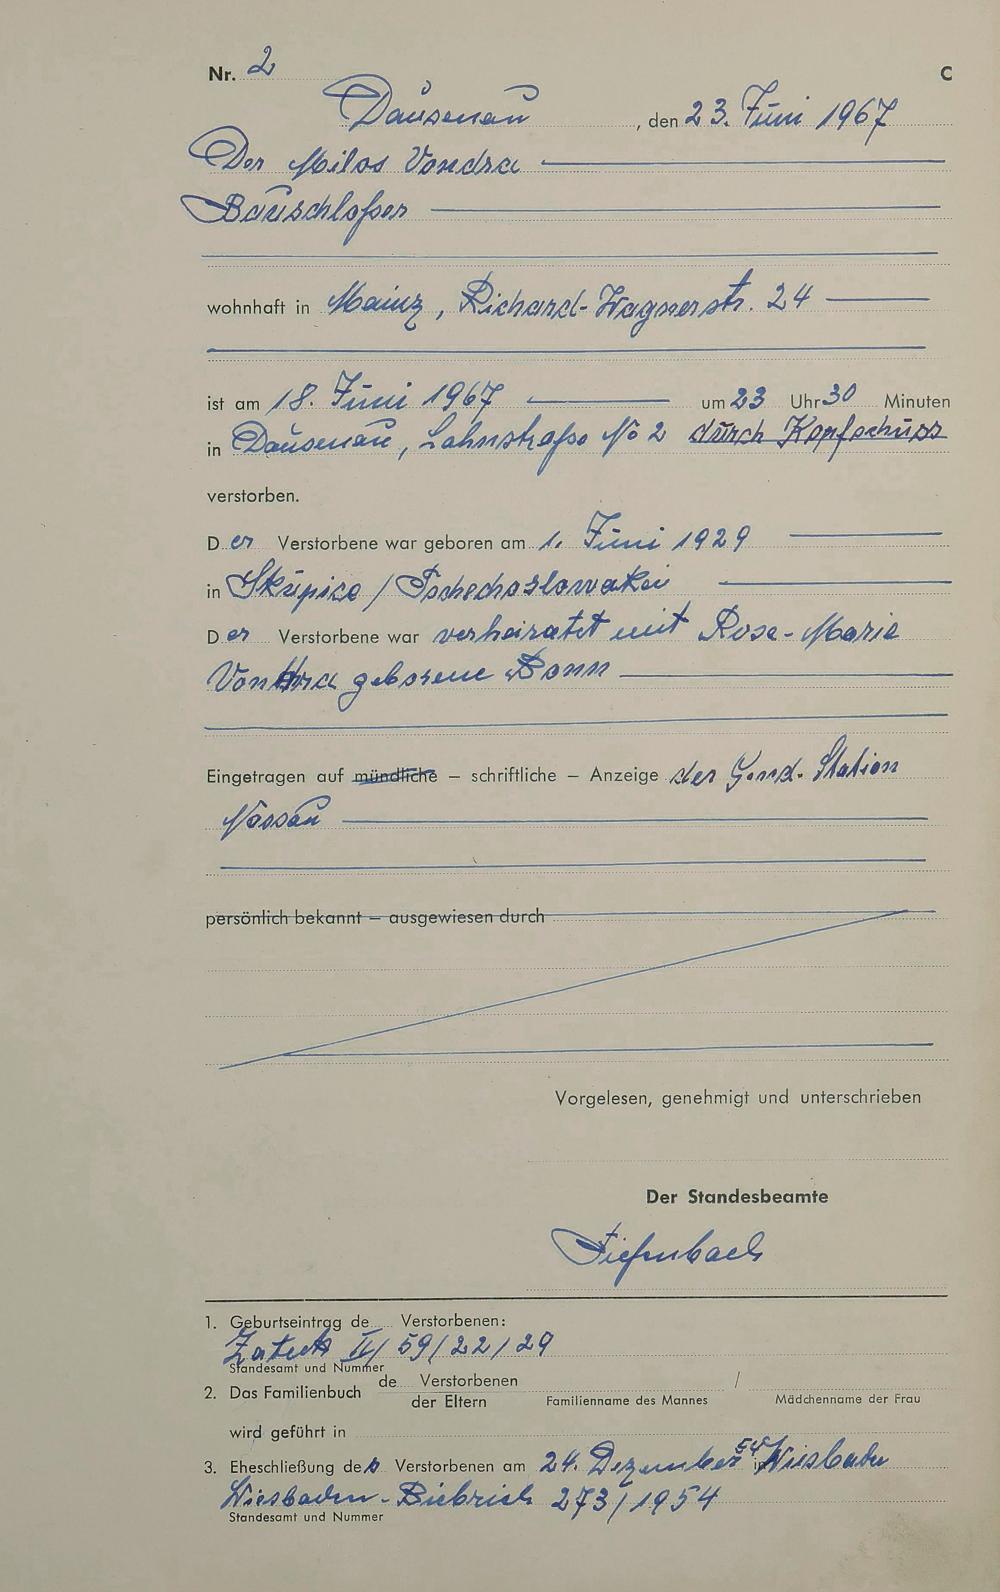 Nr. 2 C
Dausenau, den 23. Juni 1967
Der Milos Vondra
Bauschloßer
wohnhaft in Mainz, Richard-Wagnerstr. 24
ist am 18. Juni 1967 um 23 Uhr 30 Minuten
in Dausenau, Lahnstraße No 2 durch Kopfschuss
verstorben.
Der Verstorbene war geboren am 1. Juni 1929
in Skupice / Tschechoslowakei
Der Verstorbene war verheiratet mit Rose-Marie
Vondra geborene Bonn
Eingetragen auf mündliche – schriftliche – Anzeige der Gend. Station
Nassau
persönlich bekannt – ausgewiesen durch
Vorgelesen, genehmigt und unterschrieben
Der Standesbeamte
Tiefenbach
1. Geburtseintrag de Verstorbenen:
II/59/22/29
Standesamt und Nummer
2. Das Familienbuch de Verstorbenen / der Eltern
Familienname des Mannes Mädchenname der Frau
wird geführt in
3. Eheschließung des Verstorbenen am 24. Dezember 54 in Wiesbaden
Wiesbaden-Biebrich 273/1954
Standesamt und Nummer